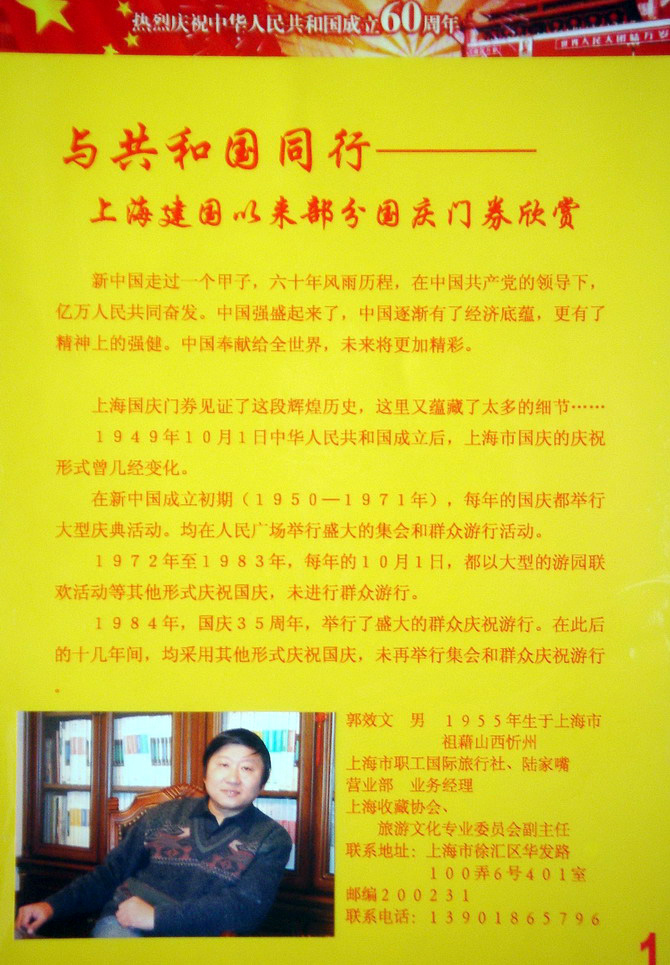 热烈庆祝中华人民共和国成立60周年
世界人民大团结万岁
与共和国同行————
上海建国以来部分国庆门券欣赏
新中国走过一个甲子，六十年风雨历程，在中国共产党的领导下，
亿万人民共同奋发。中国强盛起来了，中国逐渐有了经济底蕴，更有了
精神上的强健。中国奉献给全世界，未来将更加精彩。
上海国庆门券见证了这段辉煌历史，这里又蕴藏了太多的细节……
１９４９年１０月１日中华人民共和国成立后，上海市国庆的庆祝
形式曾几经变化。
在新中国成立初期（１９５０—１９７１年），每年的国庆都举行
大型庆典活动。均在人民广场举行盛大的集会和群众游行活动。
１９７２年至１９８３年，每年的１０月１日，都以大型的游园联
欢活动等其他形式庆祝国庆，未进行群众游行。
１９８４年，国庆３５周年，举行了盛大的群众庆祝游行。在此后
的十几年间，均采用其他形式庆祝国庆，未再举行集会和群众庆祝游行
。
郭效文　男　１９５５年生于上海市
祖籍山西忻州
上海市职工国际旅行社、陆家嘴
营业部　业务经理
上海收藏协会、
旅游文化专业委员会副主任
联系地址：上海市徐汇区华发路
１００弄６号４０１室
邮编２００２３１
联系电话：１３９０１８６５７９６
1